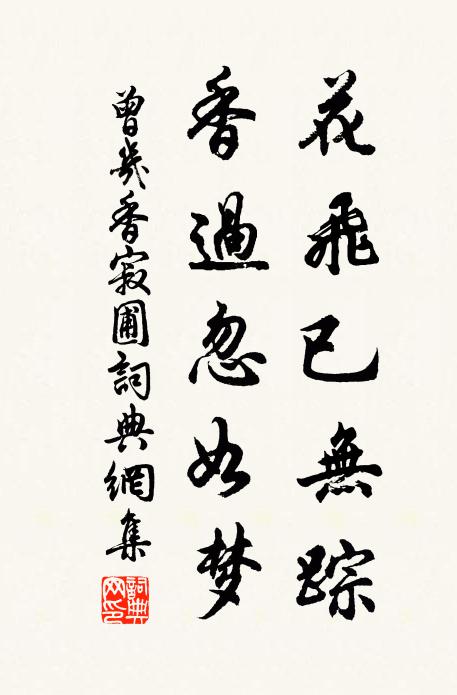 花飛已無踪
香過忽如梦
曾幾香寂圃詞典網集
詞典網印